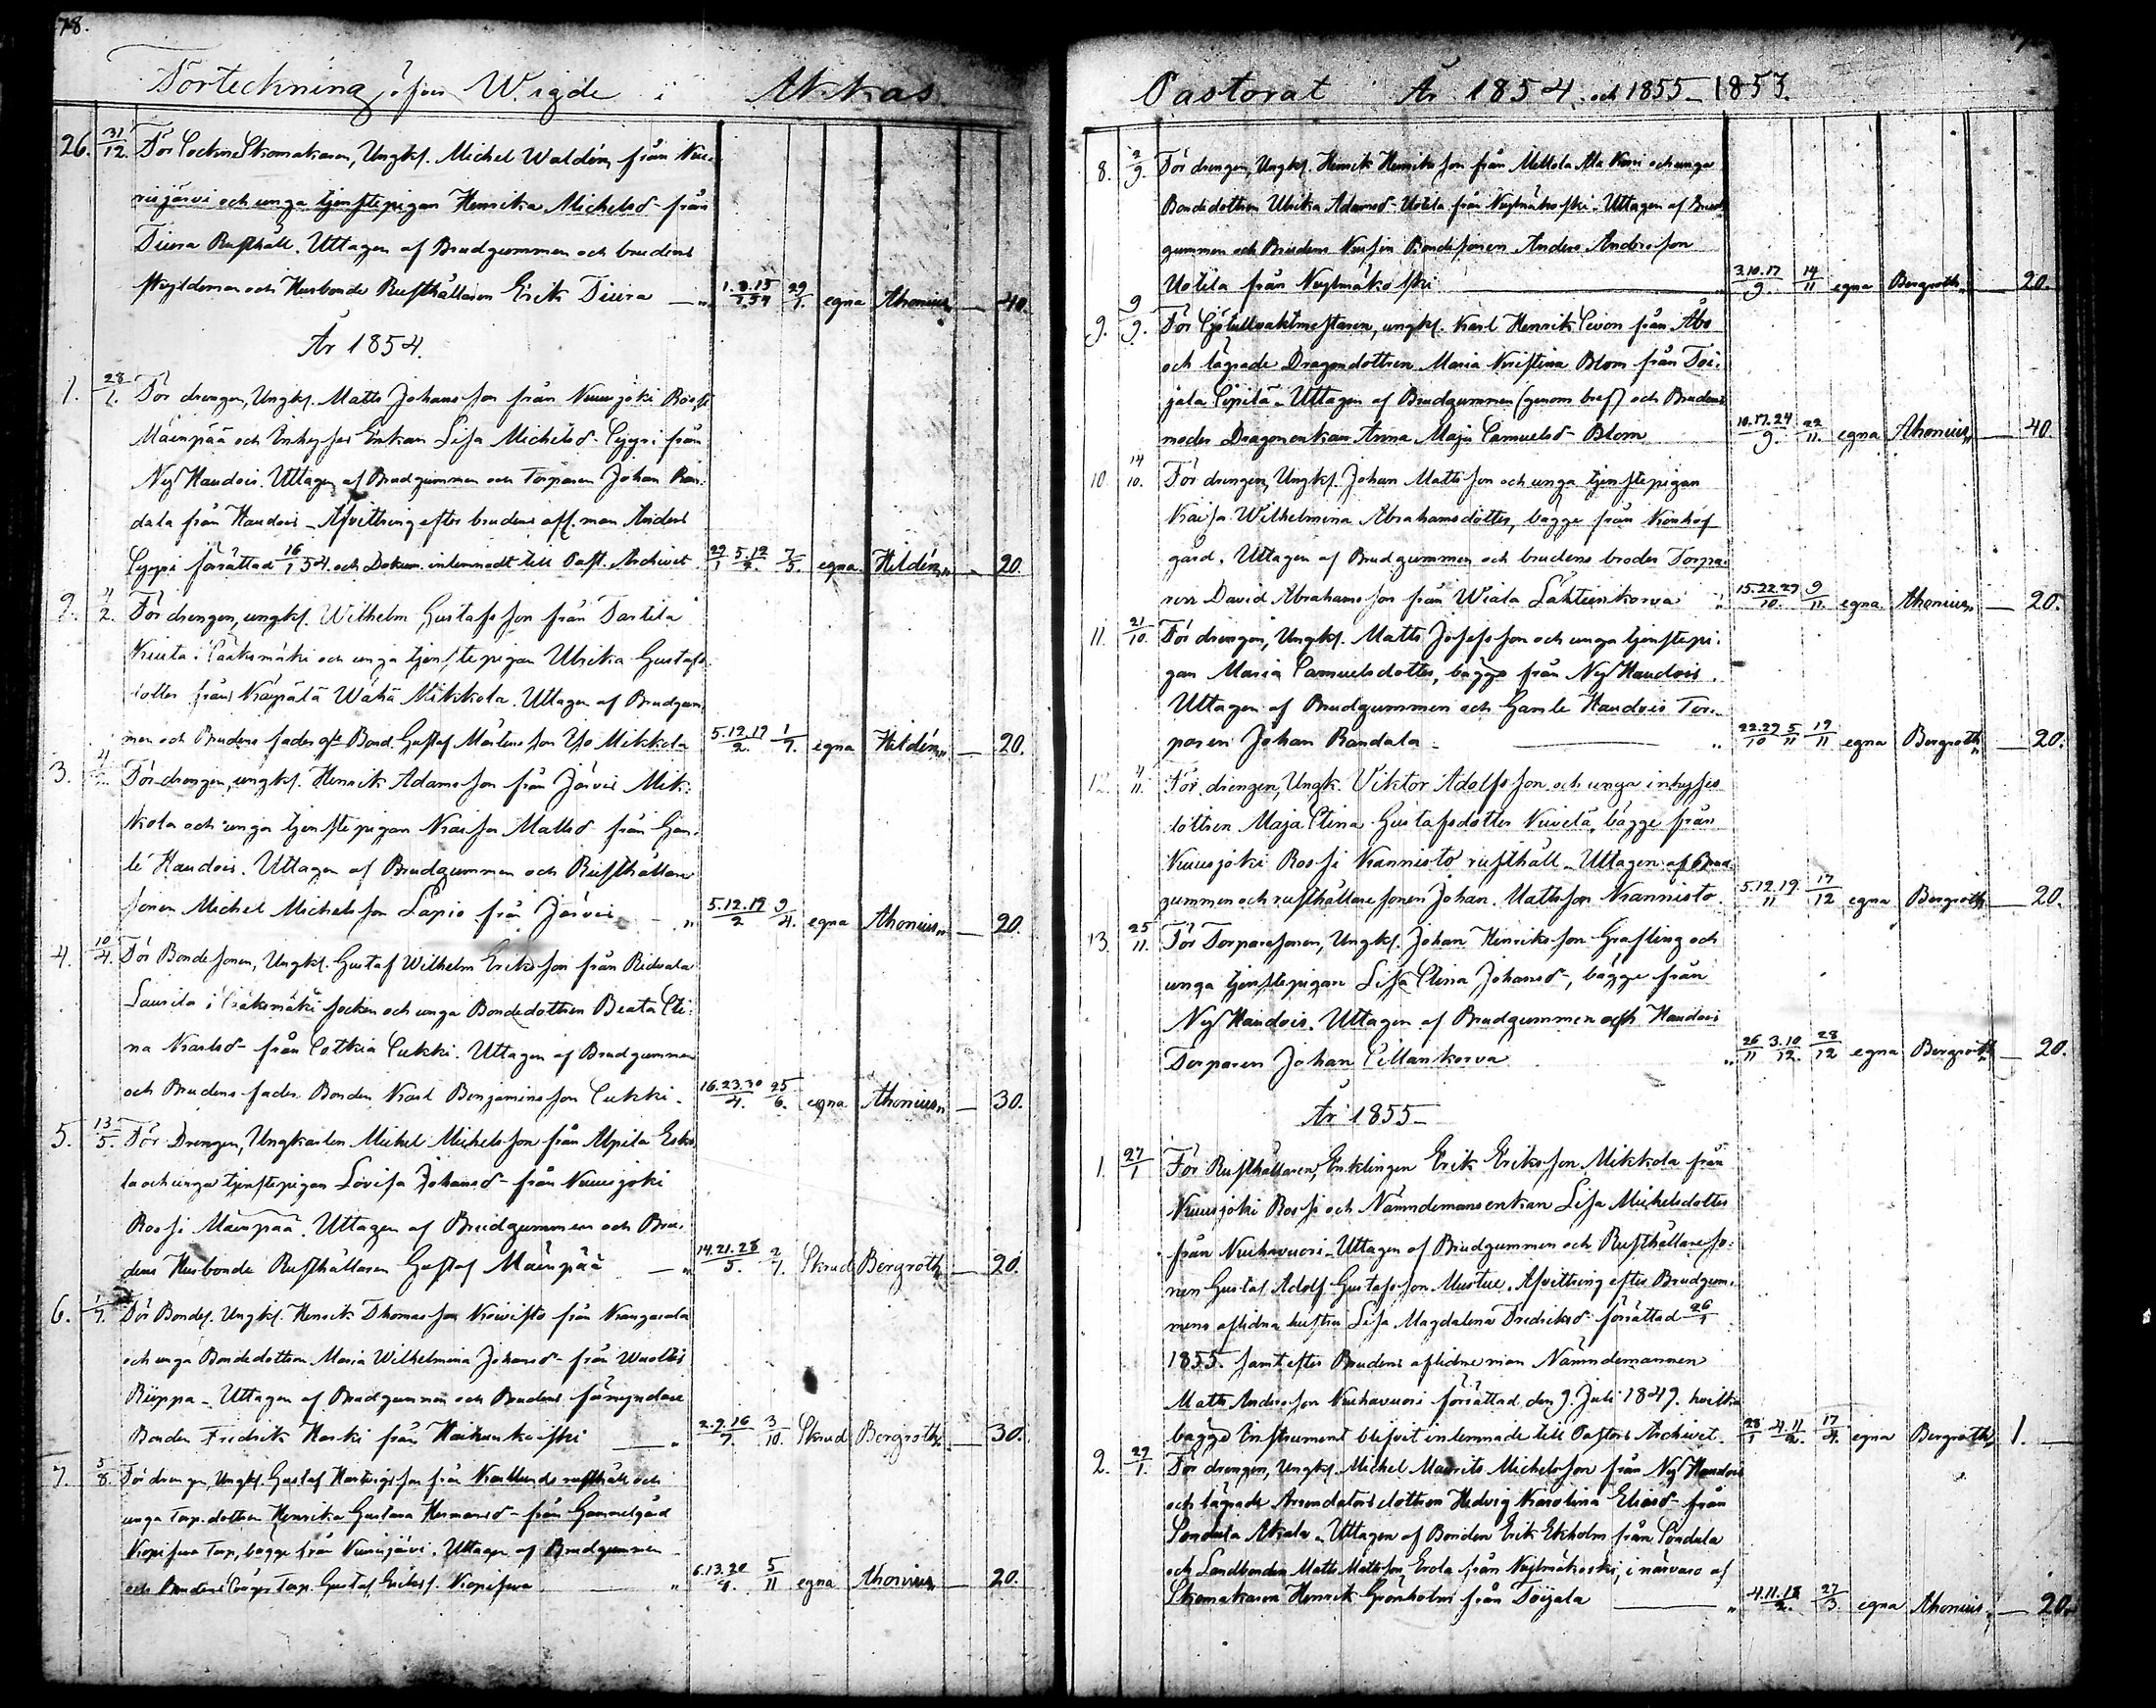 78.
Förteckning öfver Wigde i Akkas
26. 31/12. För Sockne Skomakaren, Ungk. Michel Waldén från Kuu-
rijärvi och unga tjenstepigan Henrika Michelsd- från
Tiura Rusthåll. Uttagen af Brudgummen och brudens
Husbonde Rusthållaren Erik Tiura — „ 1.8.15/1.54 29/1. egna Ahonius „ — 40.
År 1854.
1. 28/1. För drengen, Ungk. Matts Johansson från Kuurjoki Rossi
Mäenpää och Enkan Lisa Michelsd- Syyri från
Ny Haudois. Uttagen af Brudgummen och Torparen Johan Ran-
dala från Haudois - Afvittring efter brudens afl. man Anders
Syyri förrättad 16/1 54. och Dokum. inlemnadt till Past. Archivet. 29/1 5.12/2. 7/5. egna Hildén „ - 20.
2. 4/2. För drengen, ungk. Wilhelm Gustafsson från Tarttila
i Sääksmäki och unga tjenstepigan Ulrika Gustafs-
dotter från Mikkola. Uttagen af Brudgum-
men och Brudens fader Bond. Gustaf Mårtensson Mikkola 5.12.19/2. 1/7. egna Hildén „ — 20.
3. 4/2. För drengen, ungk. Henrik Adamsson från Järvis Mik-
kola och unga tjenstepigan Kaisa Mattsd- från Gam-
le Haudois. Uttagen af Brudgummen och Rusthållare
sonen Michel Michelsson Lapio från Järvis — „ 5.12.19/2 9/4. egna Ahonius „ — 20.
4. 10/4. För Bondesonen, Ungk. Gustaf Wilhelm Eriksson från Ridvala
Laurila i Sääksmäki socken och unga Bondedottren Beata Sti-
na Karlsd- från Sottkia Sukki. Uttagen af Brudgummen
och Brudens fader Bonden Karl Benjaminsson Sukki. 16.23.30/4. 25/6. egna Ahonius „ — 30.
5. 13/5. För Drengen, Ungkarlen Mickel Michelsson från Alpila Esko-
la och unga tjenstepigan Lovisa Johansd- från Kuurjoki
Rossi Mäenpää. Uttagen af Brudgummen och Bru-
dens Husbonde Rusthållaren Gustaf Mäenpää — „ 14.21.28/5. 2/7. Skrud Bergroth „ — 20.
6. 1/7. För Bondes. Ungk. Henrik Thomasson Koivisto från Kangasala
och unga Bondedottren Maria Wilhelmina Johansd- från Wuoltis
Rieppa - Uttagen af Brudgummen och Brudens förmyndare
Bonden Fredrik Harki från — „ 2.9.16/7. 3/10. Skrud Bergroth „ — 30.
7. 5/8. För drengen, Ungk. Gustaf Hartvigsson från rusthåll och
unga Torp. dottren Henrika Gustava Hermansd- från Gammelgård
Torp, bägge från Kuurijärvi. Uttagen af Brudgummen
och Brudens Torp. Gustaf Erikss. — „ 6.13.20/8. 5/11 egna Ahonius „ — 20.
Pastorat År 1854. och 1855 - 1853.
8. 2/9. För drengen, Ungk. Henrik Henriksson från Mellola Ala Kurri och unga
Bondedottren Ulrika Adamsd- Uotila från - Uttagen af Brud-
gummen och Brudens Kusin Bondesonen Anders Andersson
Uotila från — „ 3.10.17/9. 14/11 egna Bergroth „ — 20.
9. 9/9. För ungk. Karl Henrik Sevon från Åbo
och lägrade Dragondottren Maria Kristina Blom från Toi-
jala Sipilä - Uttagen af Brudgummen (genom bref) och Brudens
moder Dragonenkan Anna Maja Samuelsd- Blom 10.17.24/9. 22/11. egna Ahonius „ — 40.
10. 14/10. För drengen, Ungk. Johan Mattsson och unga tjenstepigan
Kaisa Wilhelmina Abrahamsdotter, bägge från
gård. Uttagen af Brudgummen och brudens broder Torpa-
ren David Abrahamsson från Wiala Lahteenkorva „ 15.22.29/10. 9/11. egna Ahonius „ — 20.
11. 21/10. För drengen, Ungk. Matts Josefsson och unga tjenstepi-
gan Maria Samuelsdotter, bägge från Ny Haudois.
Uttagen af Brudgummen och Gamle Haudois Tor-
paren Johan Randala — „ 22.29/10 5/11 19/11 egna Bergroth „ — 20.
12. 4/11. För drengen, Ungk. Viktor Adolfsson och unga inhyses
dottren Maja Stina Gustafsdotter Kuvelä, bägge från
Kuurjoki Rossi Kannisto rusthåll - Uttagen af Brud-
gummen och rusthållaresonen Johan Mattsson Kannisto. 5.12.19./11 17/12 egna Bergroth „ — 20.
13. 25/11. För Torparesonen, Ungk. Johan Henriksson Grafling och
unga tjenstepigan Lisa Stina Johansd-, bägge från
Ny Haudois. Uttagen af Brudgummen och Haudois
Torparen Johan Sillankorva „ 26/11 3.10/12. 28/12 egna Bergroth „ — 20.
År 1855 -
1. 27/1 För Rusthållaren, Enklingen Erik Eriksson Mikkola från
Kuurjoki Rossi och Nämndemansenkan Lisa Michelsdotter
från Kuuhavuori - Uttagen af Brudgummen och Rusthållareso-
nen Gustaf Adolf Gustafsson Mustue. Afvittring efter Brudgum-
mens aflidna hustru Lisa Magdalena Fredriksd- förrättad 26/1
1855. samt efter Brudens aflidne man Nämndemannen
Matts Andersson Kuuhavuori förrättad den 9. Juli 1849. hvilka
bägge Instrument blifvit inlemnade till Pastors Archivet. 28/1 4.11/2. 17/4. egna Bergroth „ 1. —
2. 27/1. För drengen, Ungk. Michel Maurits Michelsson från Ny Haudois
och lägrade Arrendatorsdottren Hedvig Karolina Eliasd- från
Sondala Akala - Uttagen af Bonden Erik Ekholm från Sondala
och Landbonden Matts Mattsson Erola från i närvaro af
Skomakaren Henrik Grönholm från Toijala — „ 4.11.18/2. 27/3. egna Ahonius „ — 20.